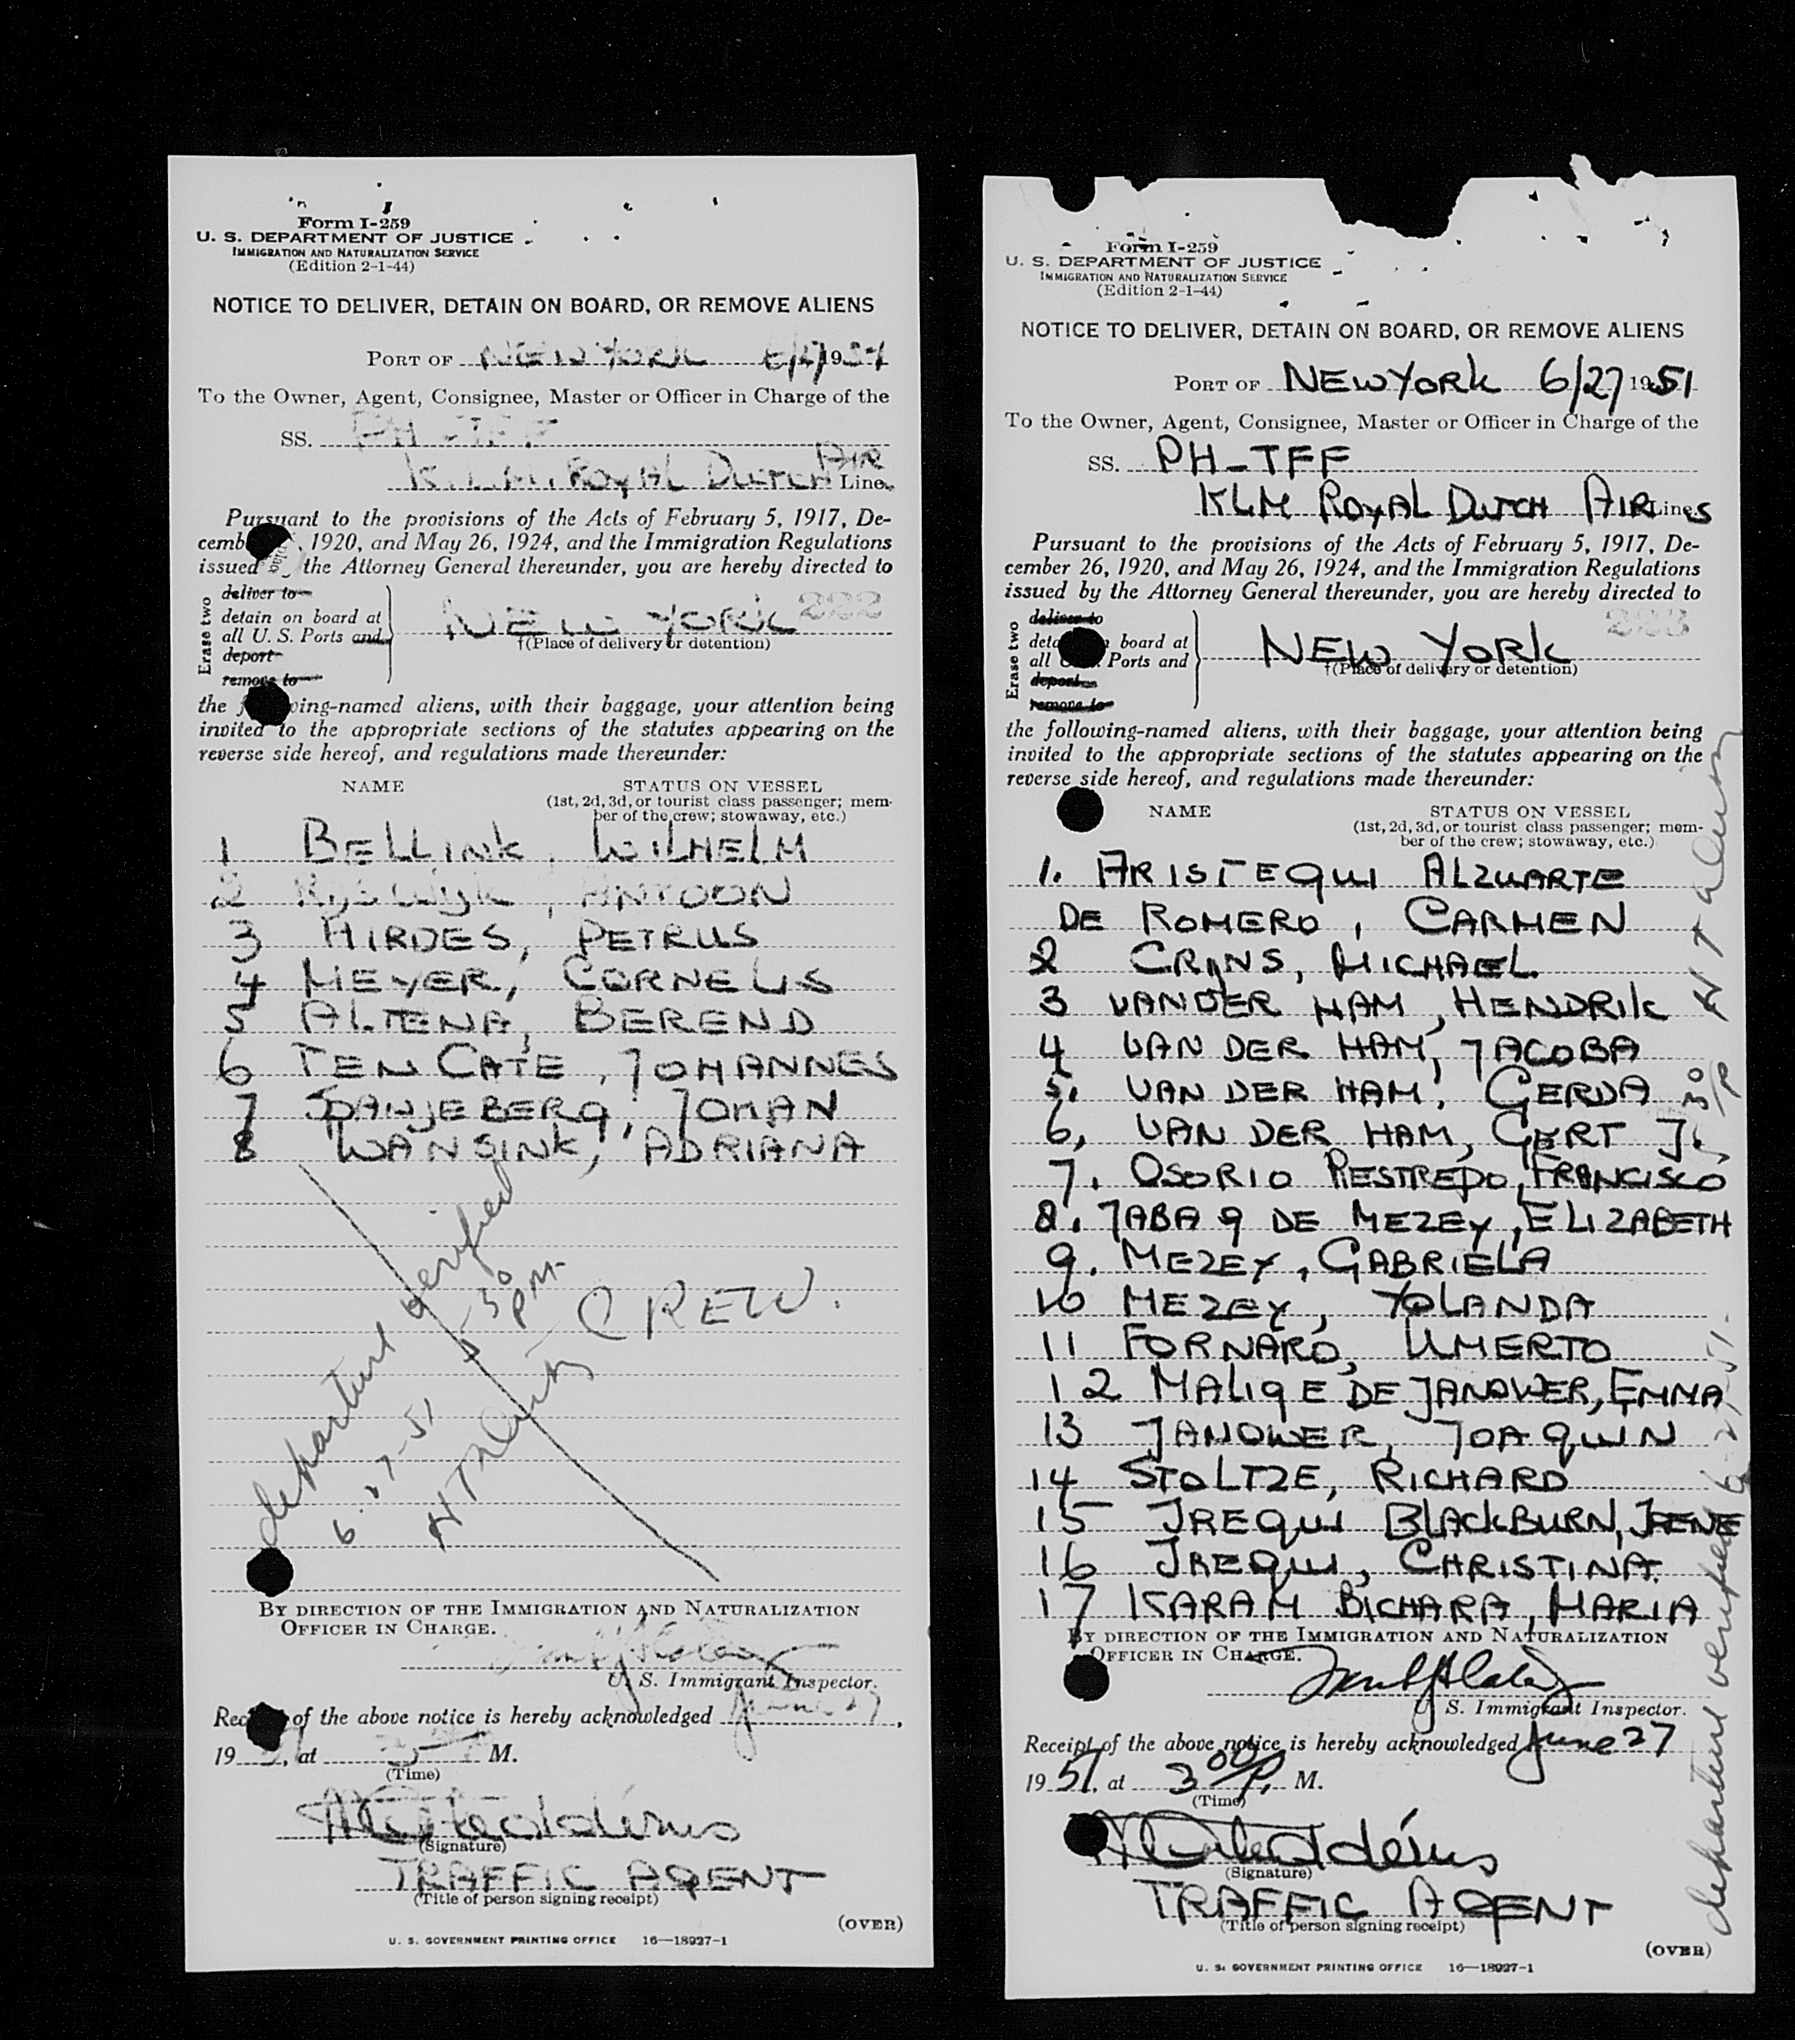 Form I-259
U. S. DEPARTMENT OF JUSTICE
IMMIGRATION AND NATURALIZATION SERVICE
(Edition 2-1-44)
NOTICE TO DELIVER, DETAIN ON BOARD, OR REMOVE ALIENS
PORT OF NEW YORK 6/27 1951
To the Owner, Agent, Consignee, Master or Officer in Charge of the
SS. PH-TFF
K.L.M. ROYAL DUTCH AIR Line
Pursuant to the provisions of the Acts of February 5, 1917, De-
cemb , 1920, and May 26, 1924, and the Immigration Regulations
issued the Attorney General thereunder, you are hereby directed to
Erase two
deliver to
detain on board at
all U. S. Ports and
deport
remove to
NEW YORK 222
†(Place of delivery or detention)
the following-named aliens, with their baggage, your attention being
invited to the appropriate sections of the statutes appearing on the
reverse side hereof, and regulations made thereunder:
NAME STATUS ON VESSEL
(1st, 2d, 3d, or tourist class passenger; mem-
ber of the crew; stowaway, etc.)
1 BELLINK, WILHELM
2 RIJSWIJK, ANTOON
3 HIRDES, PETRUS
4 MEYER, CORNELIS
5 ALTENA, BEREND
6 TEN CATE, JOHANNES
7 SPANJEBERG, JOHAN
8 WANSINK, ADRIANA
departure verified
5 30 PM
6-27-51
CREW.
BY DIRECTION OF THE IMMIGRATION AND NATURALIZATION
OFFICER IN CHARGE.
U. S. Immigrant Inspector.
Receipt of the above notice is hereby acknowledged June 27,
19 51, at 3 M.
(Time)
(Signature)
TRAFFIC AGENT
(Title of person signing receipt)
(OVER)
U. S. GOVERNMENT PRINTING OFFICE 16—18927-1
Form I-259
U. S. DEPARTMENT OF JUSTICE
IMMIGRATION AND NATURALIZATION SERVICE
(Edition 2-1-44)
NOTICE TO DELIVER, DETAIN ON BOARD, OR REMOVE ALIENS
PORT OF NEW YORK 6/27 1951
To the Owner, Agent, Consignee, Master or Officer in Charge of the
SS. PH-TFF
KLM ROYAL DUTCH AIR Lines
Pursuant to the provisions of the Acts of February 5, 1917, De-
cember 26, 1920, and May 26, 1924, and the Immigration Regulations
issued by the Attorney General thereunder, you are hereby directed to
Erase two
deliver to
detain on board at
all U. S. Ports and
deport
remove to
NEW YORK 223
†(Place of delivery or detention)
the following-named aliens, with their baggage, your attention being
invited to the appropriate sections of the statutes appearing on the
reverse side hereof, and regulations made thereunder:
NAME STATUS ON VESSEL
(1st, 2d, 3d, or tourist class passenger; mem-
ber of the crew; stowaway, etc.)
1. ARISTEQUI ALZUARTE
DE ROMERO, CARMEN
2 CRIJNS, MICHAEL
3 VAN DER HAM, HENDRIK
4 VAN DER HAM, JACOBA
5. VAN DER HAM, GERDA
6, VAN DER HAM, GERT J.
7. OSORIO RESTREPO, FRANCISCO
8. JABAG DE MEZEY, ELIZABETH
9. MEZEY, GABRIELA
10 MEZEY, YOLANDA
11 FORNARO, UMERTO
12 MALIGE DE JANOWER, EMMA
13 JANOWER, JOAQUIN
14 STOLTZE, RICHARD
15 IREQUI BLACKBURN, IRENE
16 IREQUI, CHRISTINA.
17 KARAM BICHARA, MARIA
departure verified 6-27-51. 5 30 P
BY DIRECTION OF THE IMMIGRATION AND NATURALIZATION
OFFICER IN CHARGE.
U. S. Immigrant Inspector.
Receipt of the above notice is hereby acknowledged June 27
19 51, at 3 00 P. M.
(Time)
(Signature)
TRAFFIC AGENT
(Title of person signing receipt)
(OVER)
U. S. GOVERNMENT PRINTING OFFICE 16—18927-1